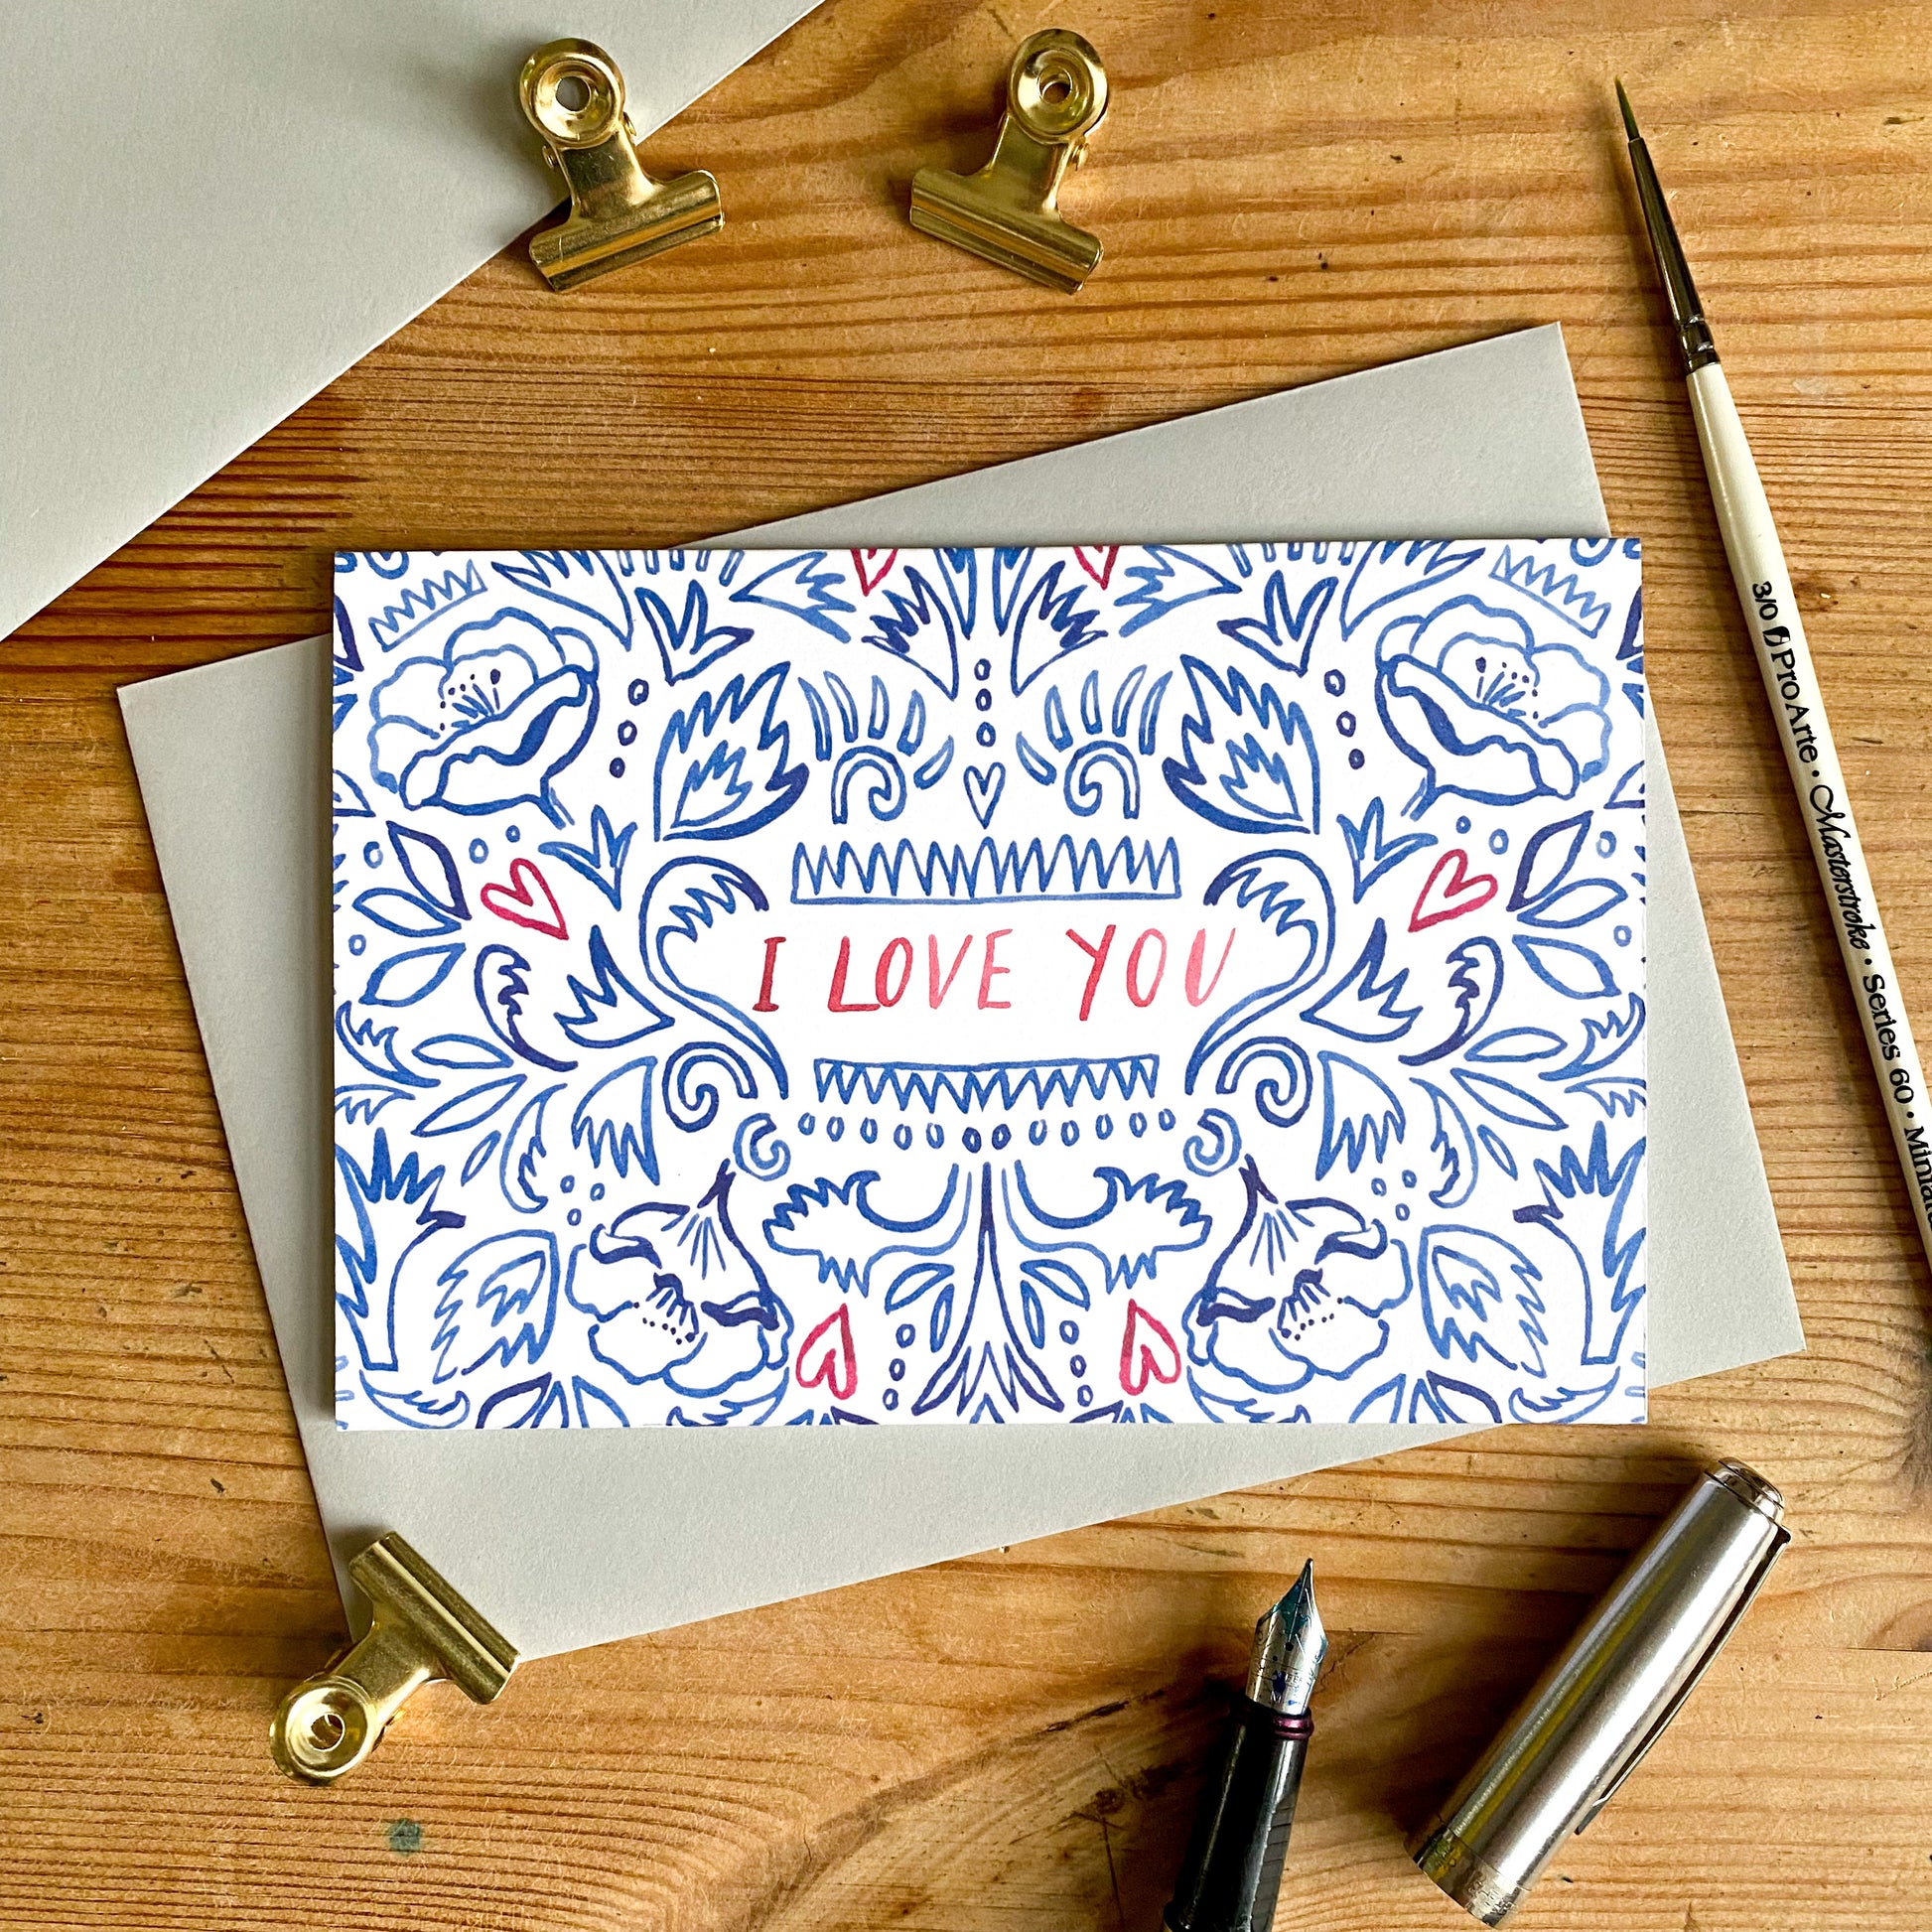 I LOVE YOU
3/0 ProArte • Masterstroke • Series 60 •